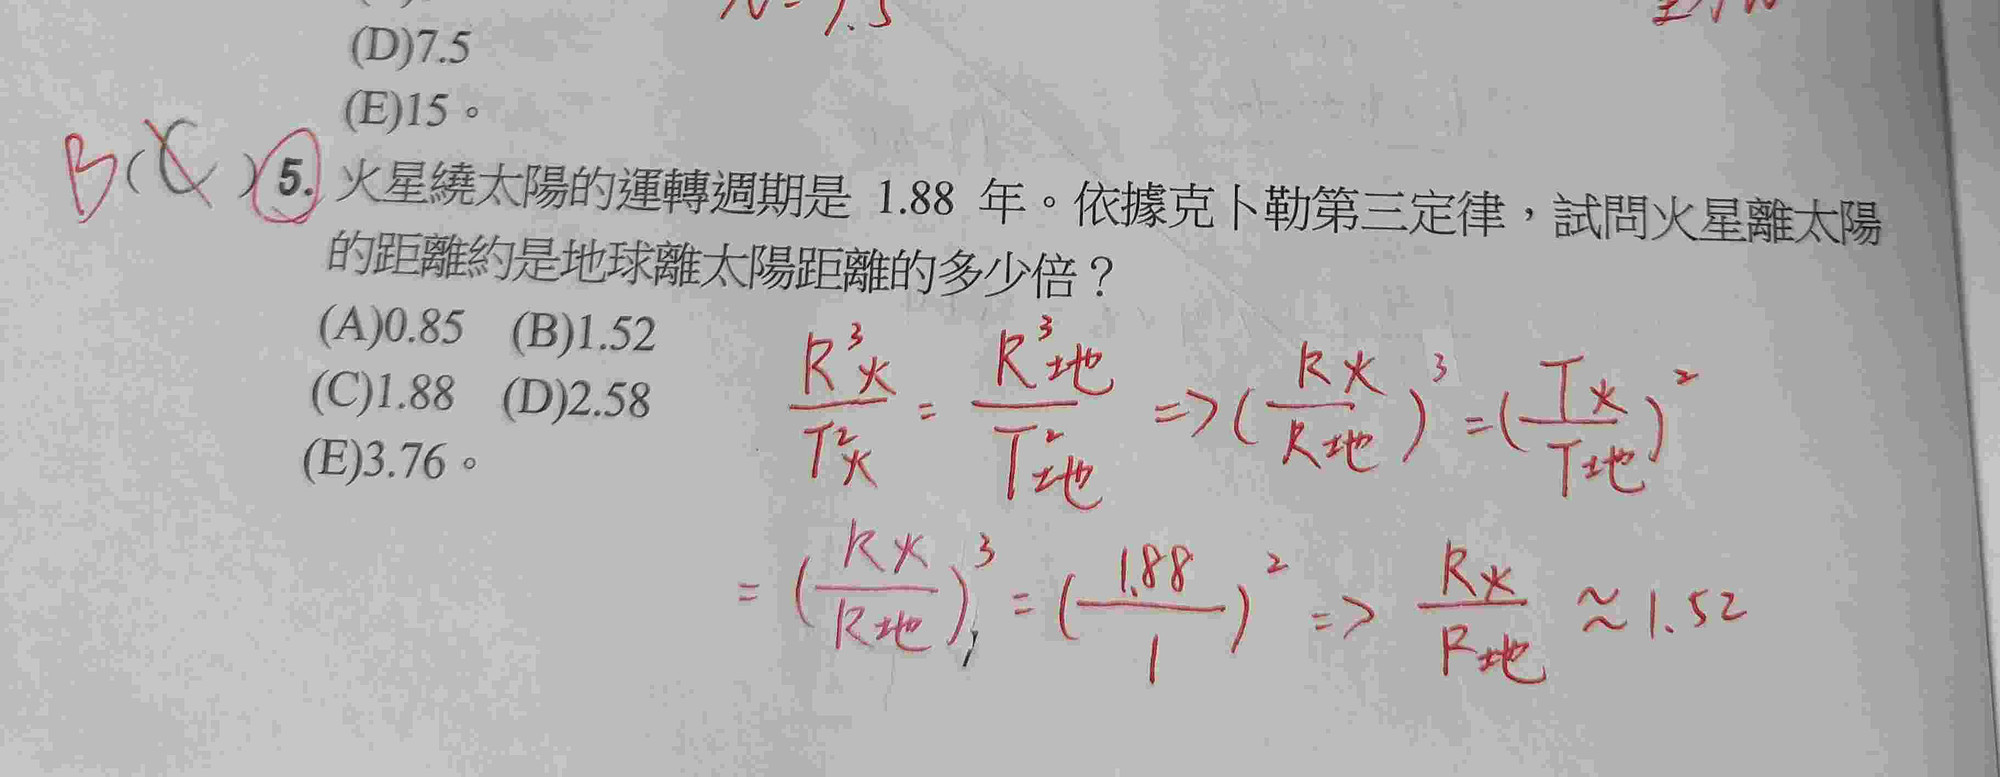 (D)7.5
(E)15。
B(C)5. 火星繞太陽的運轉週期是 1.88 年。依據克卜勒第三定律,試問火星離太陽
的距離約是地球離太陽距離的多少倍?
(A)0.85 (B)1.52
(C)1.88 (D)2.58
(E)3.76。
R³火/T²火 = R³地/T²地 => (R火/R地)³ = (T火/T地)²
= (R火/R地)³ = (1.88/1)² => R火/R地 ≈ 1.52